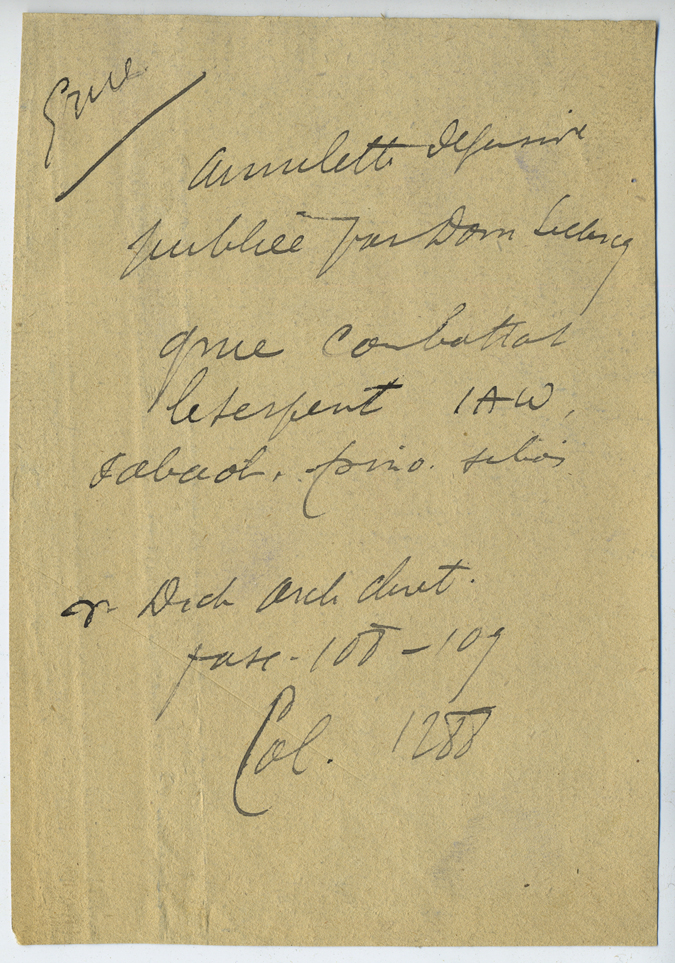 Grue
Amulette défensive
publiée par Dom Leclercq
grue combattant
le serpent IAW,
sabaot,
v. Dict Arch chret.
fasc. 108-109
Col. 1288